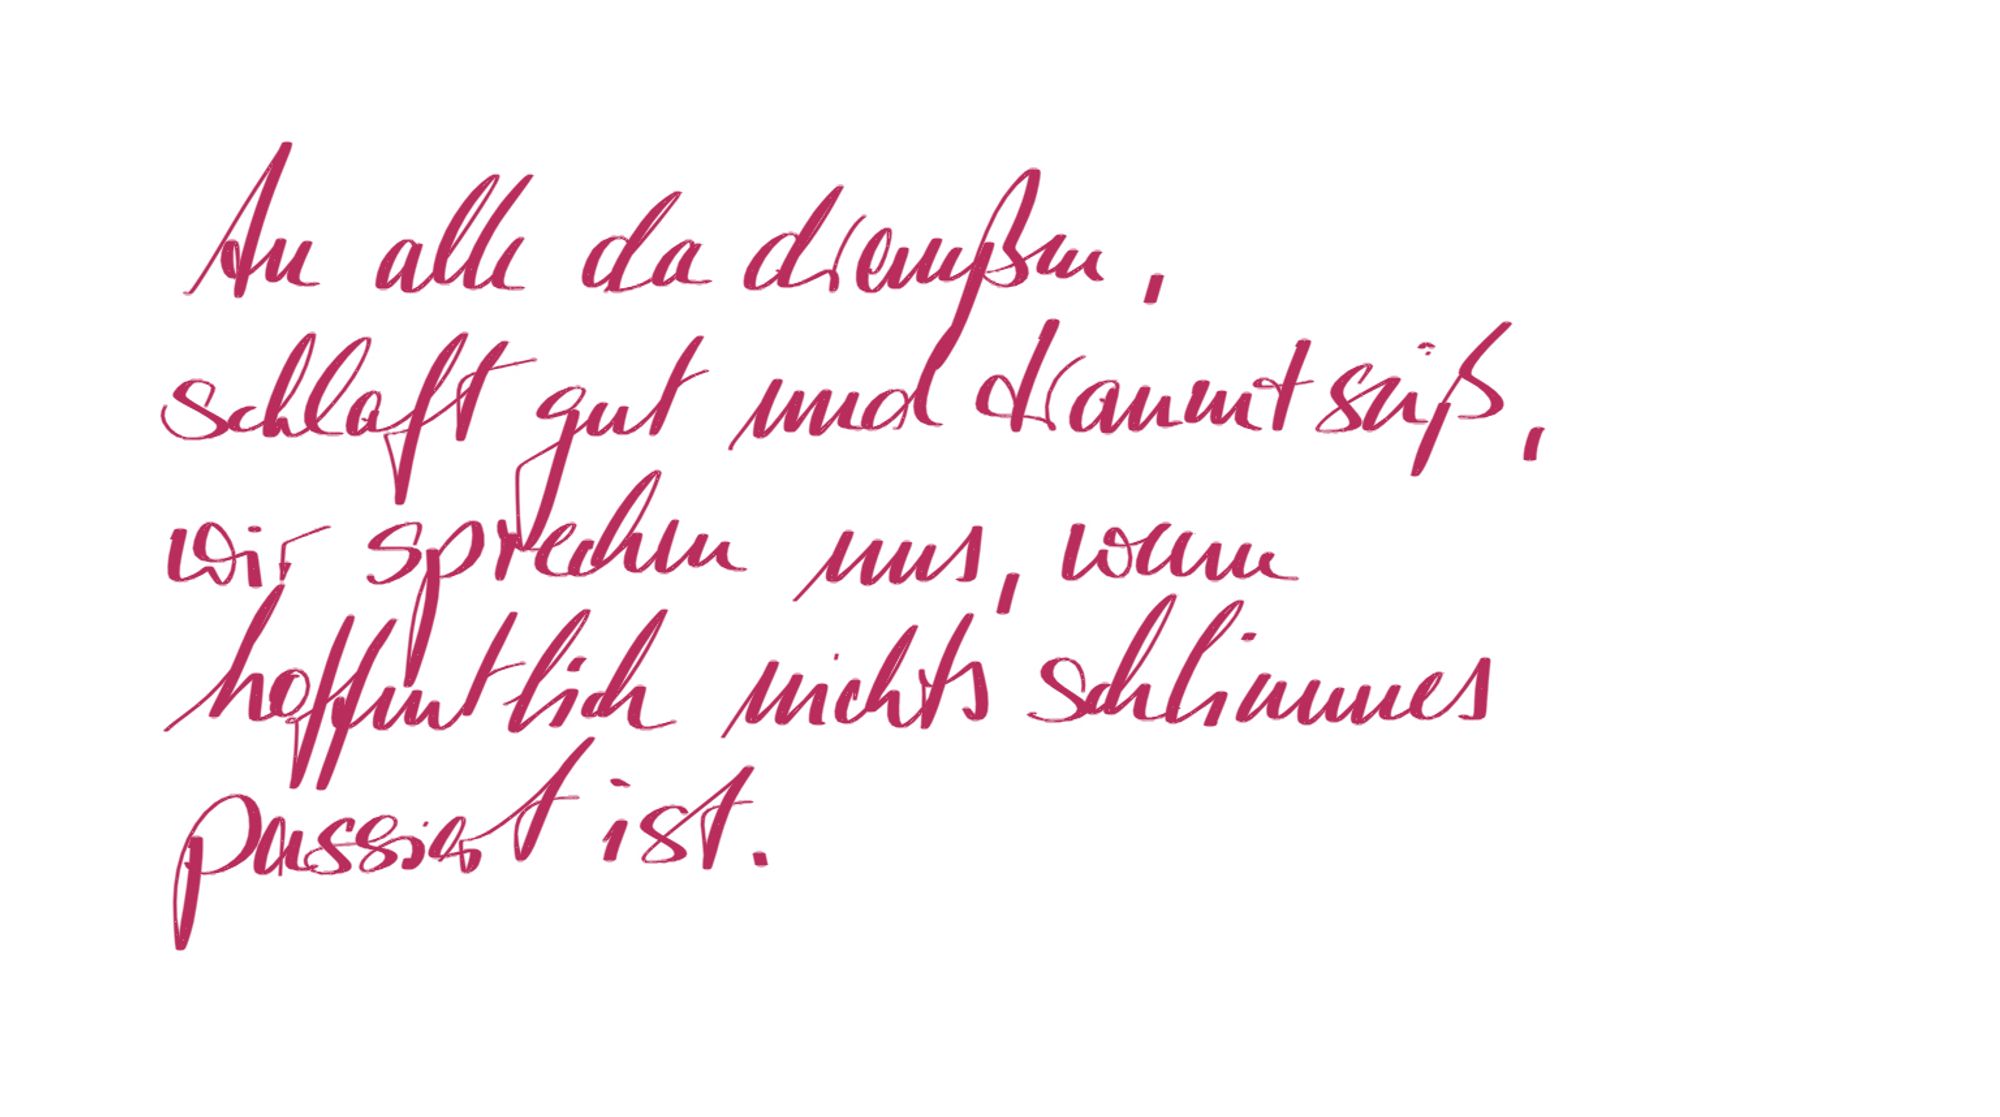 An alle da draußen,
schlaft gut und träumt süß,
wir sprechen uns, wenn
hoffentlich nichts schlimmes
passiert ist.